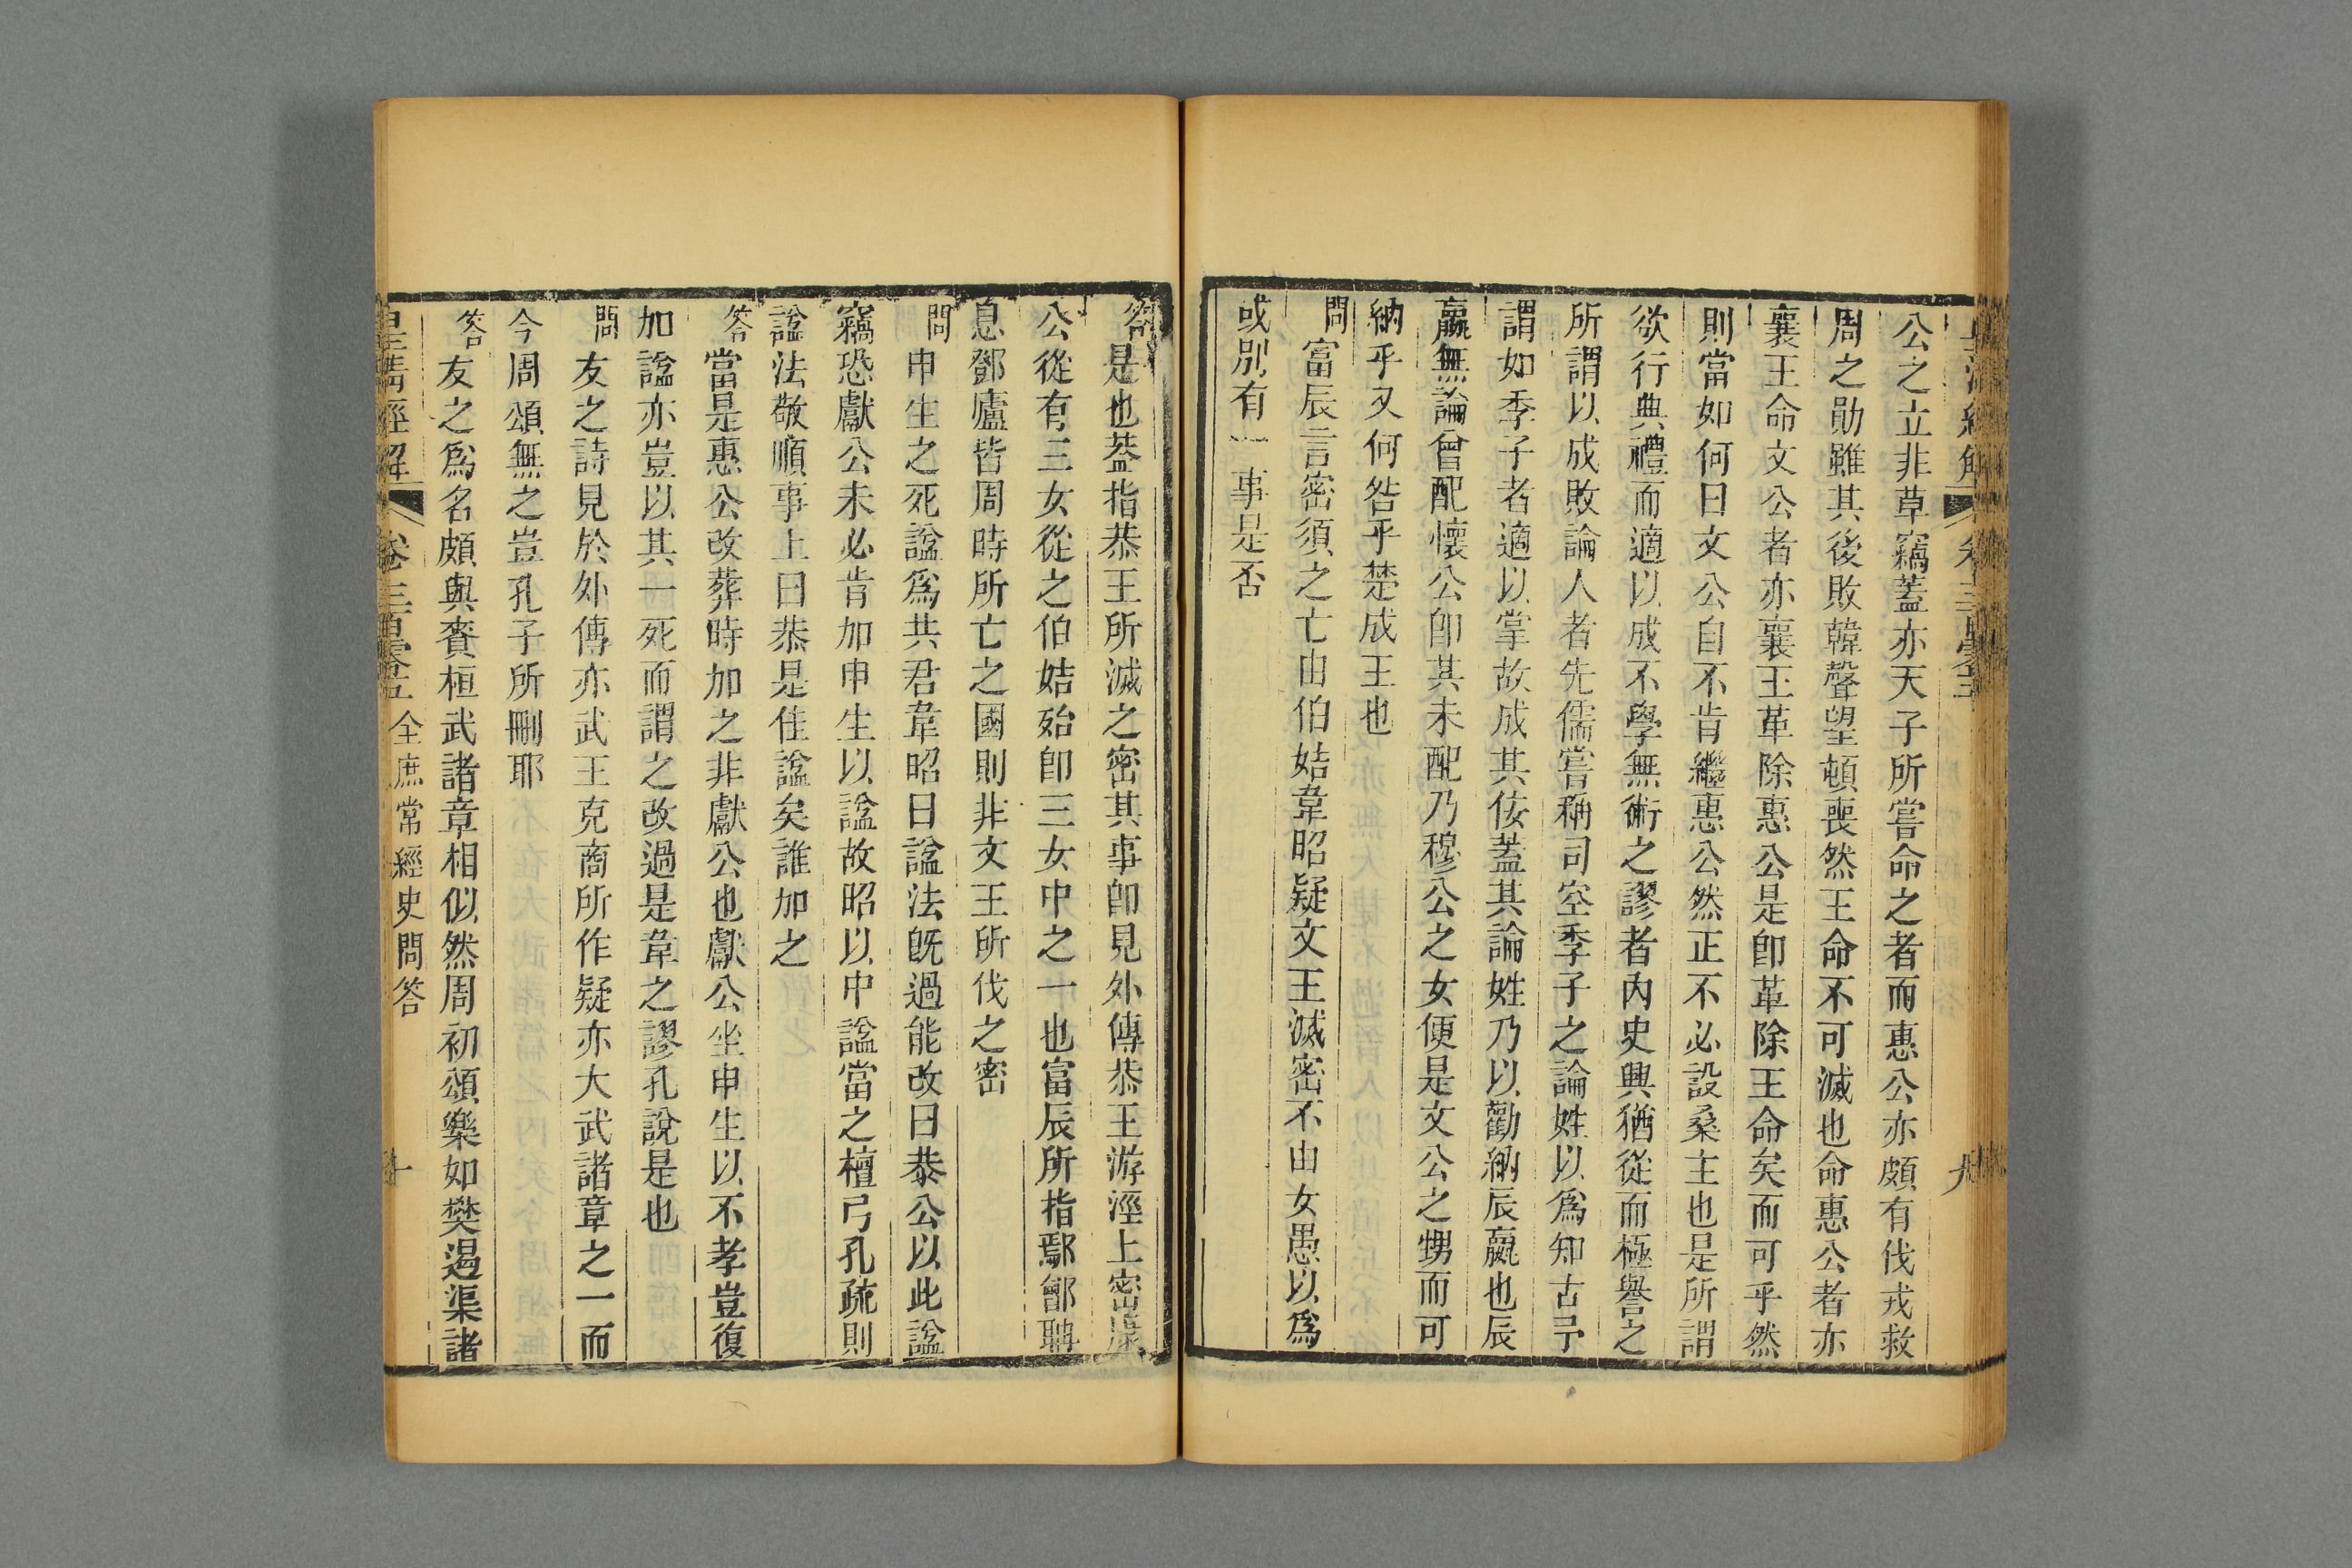 公之立非草竊蓋亦天子所嘗命之者而惠公亦頗有伐戎救
周之勛雖其後敗韓聲望頓喪然王命不可滅也命惠公者亦
襄王命文公者亦襄王革除惠公是卽革除王命矣而可乎然
則當如何曰文公自不肯繼惠公然正不必設桑主也是所謂
欲行典禮而適以成不學無術之謬者內史興猶從而極譽之
所謂以成敗論人者先儒嘗稱司空季子之論姓以爲知古予
謂如季子者適以掌故成其佞蓋其論姓乃以勸納辰嬴也辰
嬴無論曾配懷公卽其未配乃穆公之女便是文公之甥而可
納乎又何咎乎楚成王也
問富辰言密須之亡由伯姞韋昭疑文王滅密不由女愚以爲
或別有一事是否
答是也葢指恭王所滅之密其事卽見外傳恭王游涇上密康
公從有三女從之伯姞殆卽三女中之一也富辰所指鄢鄶聃
息鄧廬皆周時所亡之國則非文王所伐之密
問申生之死諡爲共君韋昭曰諡法旣過能改曰恭公以此諡
竊恐獻公未必肯加申生以諡故昭以中諡當之檀弓孔疏則
諡法敬順事上曰恭是佳諡矣誰加之
答當是惠公改葬時加之非獻公也獻公坐申生以不孝豈復
加諡亦豈以其一死而謂之改過是韋之謬孔說是也
問友之詩見於外傳亦武王克商所作疑亦大武諸章之一而
今周頌無之豈孔子所刪耶
答友之爲名頗與賚桓武諸章相似然周初頌樂如樊遏渠諸
皇清經解 卷三百零五 全庶常經史問答 十